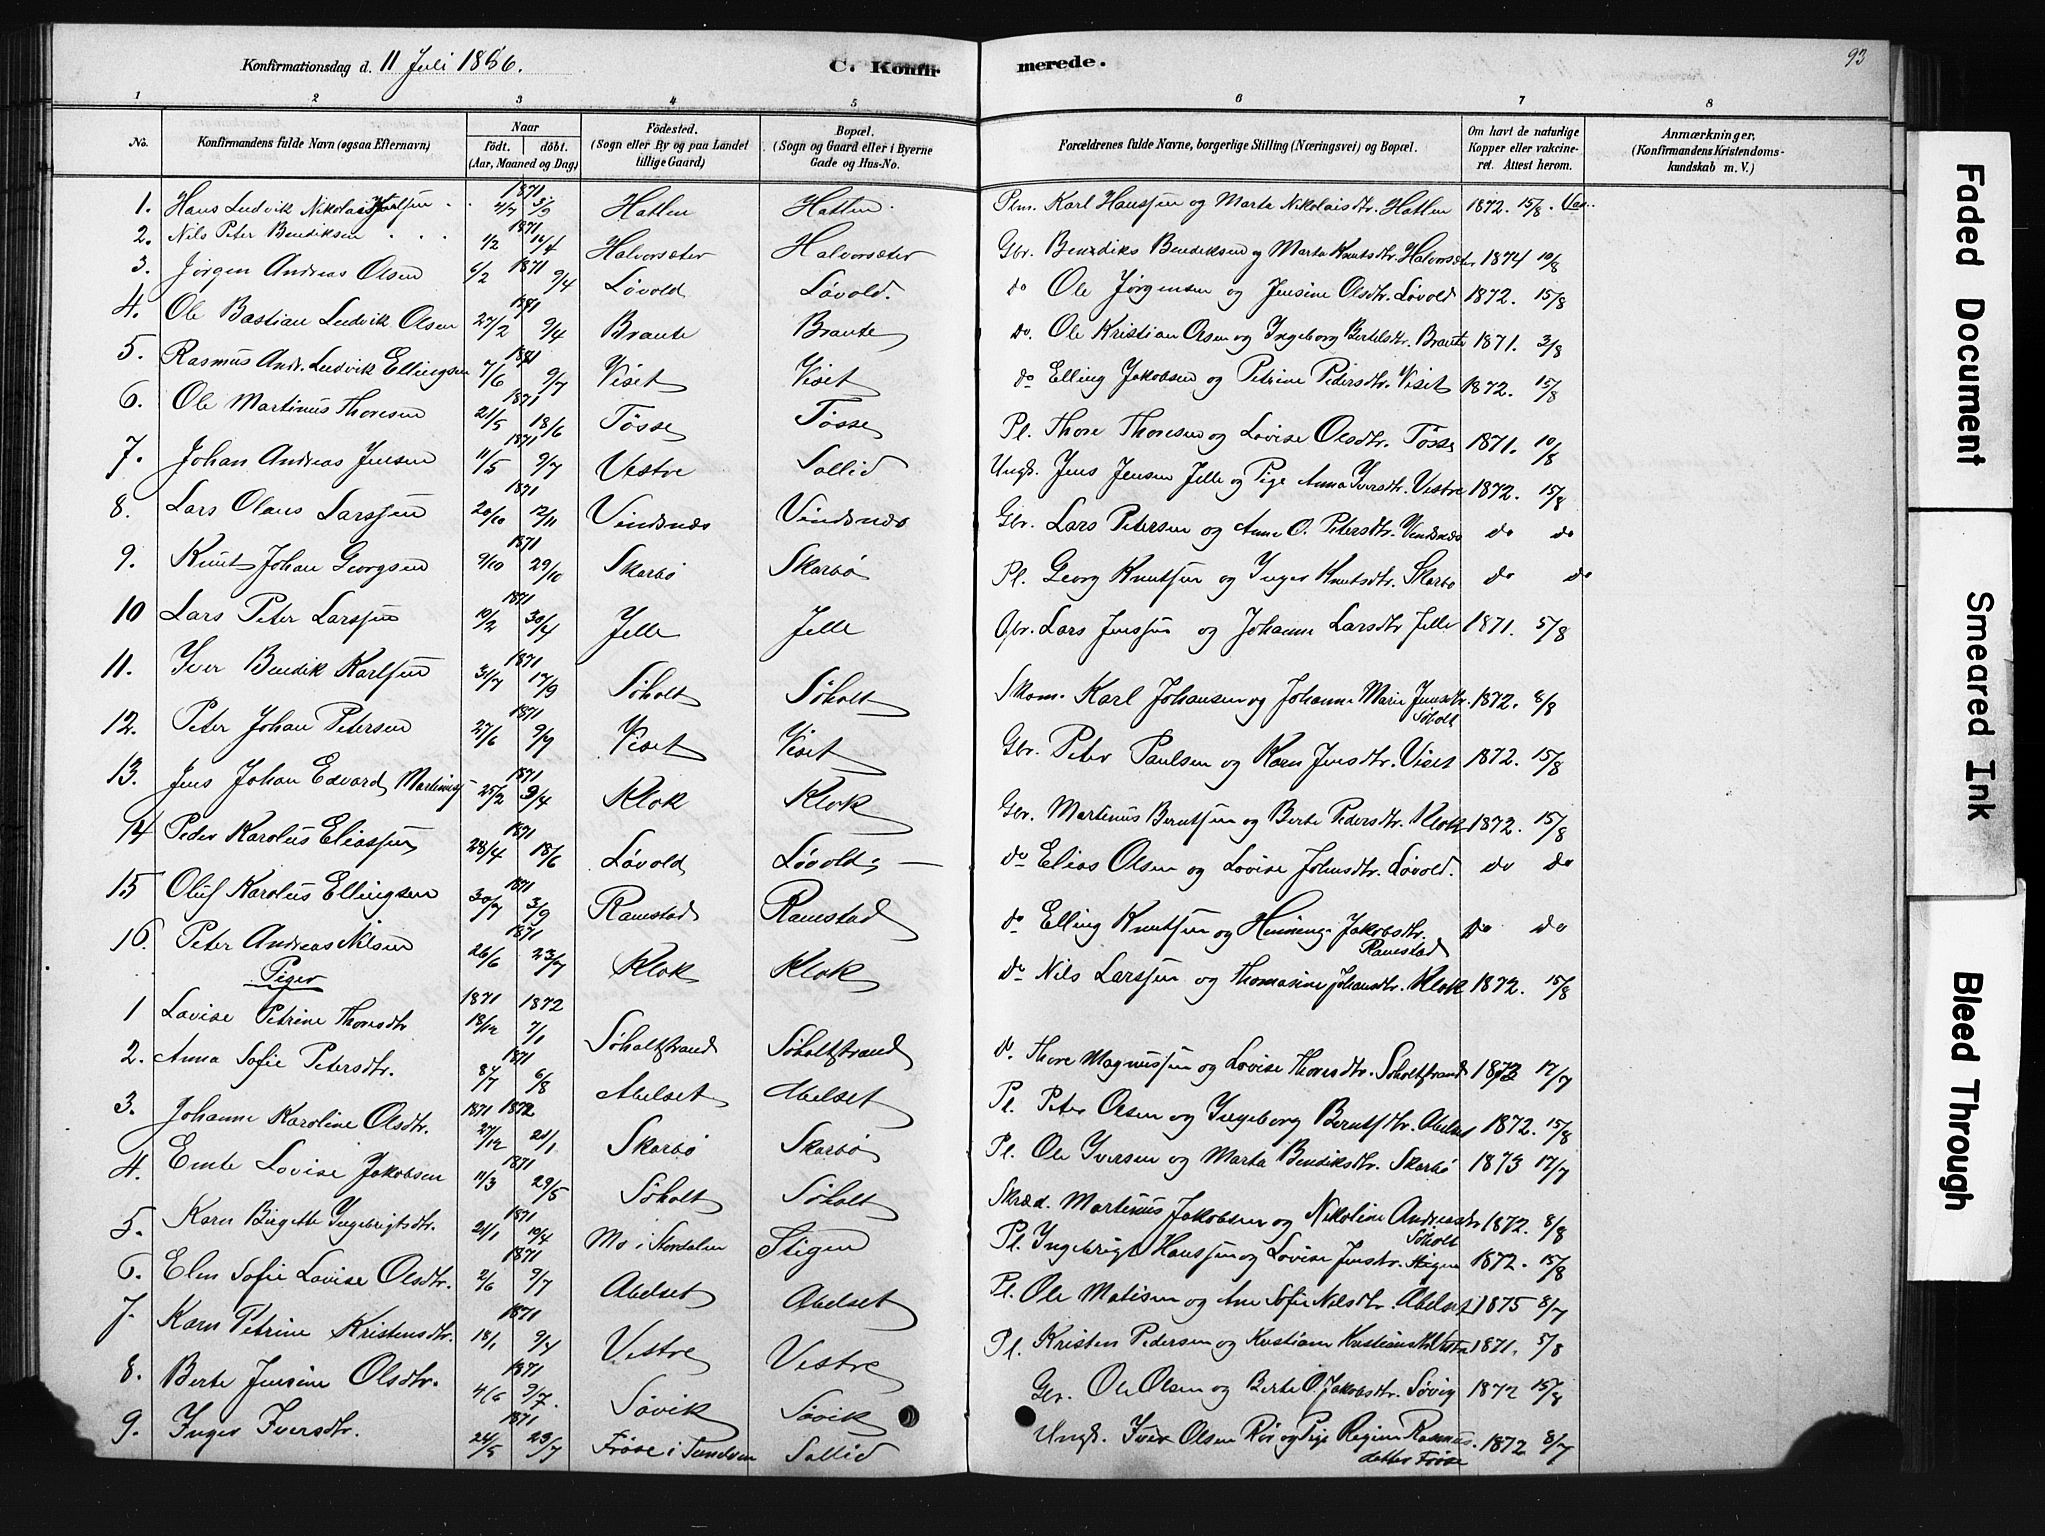 Konfirmationsdag d. 11 Juli 1886. C. Konfir merede. 93
1 2 3 4 5 6 7 8
No. Konfirmandens fulde Navn (ogsaa Efternavn) Naar født. døbt. (Aar, Maaned og Dag) Fødested. (Sogn eller By og paa Landet tillige Gaard) Bopæl. (Sogn og Gaard eller i Byerne Gade og Hus-No. Forældrenes fulde Navne, borgerlige Stilling (Næringsvei) og Bopæl. Om havt de naturlige Kopper eller vakcineret. Attest herom. Anmærkninger, (Konfirmandens Kristendomskundskab m. V.)
1. Hans Ludvik Nikolai Karlsen 1871 4/7 3/9 Hatlen Hatlen Plm. Karl Hanssen og Marta Nikolaisdtr. Hatlen 1872. 15/8. Vac.
2. Nils Peter Bendiksen 1871 1/2 16/4 Halvorsæter Halvorsæter Gbr. Bendiks Bendiksen og Marta Knutsdtr. Halvorsæter 1874 10/8
3. Jørgen Andreas Olsen 1871 6/2 9/4 Løvold Løvold. do Ole Jørgensen og Jensine Olsdtr. Løvold 1872. 15/8
4. Ole Bastian Ludvik Olsen 1871 27/2 9/4 Braute Braute do. Ole Kristian Olsen og Ingeborg Bertelsdtr. Braute 1871. 3/8
5. Rasmus Andr. Ludvik Ellingsen 1871 7/6 9/7 Viset Viset do Elling Jakobsen og Petrine Pedersdtr. Viset 1872. 15/8
6. Ole Martinus Thoresen 1871 21/5 18/6 Tøsse Tøsse Pl. Thore Thoresen og Lovise Olsdtr. Tøsse 1871. 10/8
7. Johan Andreas Jensen 1871 11/5 9/7 Vestre Sollid Ungk. Jens Jensen Jelle og Pige Anna Iversdtr. Vestre 1872. 15/8
8. Lars Olaus Larssen 1871 20/10 12/11 Vindsnæs Vindsnæs Gbr. Lars Petersen og Anne O. Petersdtr. Vindsnæs do do
9. Knut Johan Georgsen 1871 9/10 29/10 Skarbø Skarbø Pl. Georg Knutsen og Inger Knutsdtr. Skarbø do do
10 Lars Peter Larssen 1871 19/2 30/4 Jelle Jelle Gbr. Lars Jenssen og Johanne Larsdtr Jelle 1871. 5/8
11. Iver Bendik Karlsen 1871 31/7 17/9 Søholt Søholt Skom. Karl Johansen og Johanne Marie Jensdtr. Søholt 1872. 8/8
12. Peter Johan Petersen 1871 27/6 9/7 Viset Viset Gbr. Peter Paulsen og Karn Jensdtr. Viset 1872. 15/8
13. Jens Johan Edvard Martinus 1871 25/2 9/4 Klok Klok Gbr. Martinus Berntsen og Berte Pedersdtr. Klok 1872. 15/8
14 Peder Karolus Eliassen 1871 28/4 18/6 Løvold Løvold do Elias Olsen og Lovise Johnsdtr. Løvold. do do
15 Oluf Karolus Ellingsen 1871 30/7 3/9 Ramstad Ramstad do Elling Knutsen og Henning. Jakobsdtr. Ramstad do do
16. Peter Andreas Nilsen 1871 26/6 23/7 Klok Klok do Nils Larssen og Thomasine Johansdtr. Klok 1872. 15/8
Piger
1 Lovise Petrine Thoresdtr 1871 18/12 1872 7/1 Søholtstrand Søholtstrand do. Thore Magnussen og Lovise Thoresdtr. Søholtstrand 1873 17/7
2. Anna Sofie Petersdtr. 1871 6/8 Abelset Abelset Pl. Peter Olsen og Ingeborg Berntsdtr. Abelset 1872. 15/8
3. Johanne Karoline Olsdtr. 1871 27/12 1872 21/1 Skarbø Skarbø Pl. Ole Iversen og Marta Bendiksdtr. Skarbø 1873 17/7
4. Emte Lovise Jakobsen 1871 11/3 29/5 Søholt Søholt Skræd. Martinus Jakobsen og Nikoline Andreasdtr Søholt 1872. 8/8
5. Karn Birgette Ingebrigtsdtr. 1871 21/1 10/4 Mo i Stordalen Stigen Pl. Ingebrigt Hanssen og Lovise Jensdtr. Stigen 1872. 15/8
6. Elen Sofie Lovise Olsdtr. 1871 2/6 9/7 Abelset Abelset Pl. Ole Matisen og Ane Sofie Nilsdtr. Abelset 1875 8/7
7. Karn Petrine Kristensdtr. 1871 18/1 9/4 Vestre Vestre Pl. Kristen Pedersen og Kristiane Kristiansdtr. Vestre 1871. 5/8
8. Berte Jensine Olsdtr. 1871 4/6 9/7. Søvik Søvik Gbr. Ole Olsen og Berte O. Jakobsdtr. Søvig 1872 15/8
9. Inger Iversdtr. 1871 24/5 23/7 Frøse i Sundven Sollid Ungk. Iver Olsen Røs og Pige Regine Rasmusdatter Frøse 1872 8/7
Faded Document
Smeared Ink
Bleed Through